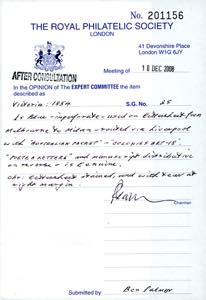 No. 201156
THE ROYAL PHILATELIC SOCIETY
LONDON
41 Devonshire Place
London W1G 6JY
AFTER CONSULTATION
Meeting of 10 DEC 2008
In the OPINION of The EXPERT COMMITTEE the item
described as
Victoria: 1854 S.G. No. 25
1s Blue - imperforate - used on entire from
Melbourne to - routed via Liverpool
with "AUSTRALIAN PACKET" - "COLONIES ART-13"
and manuscript
on reverse - is genuine.
stained, and with tear at
right margin.
Submitted by Ben Palmer